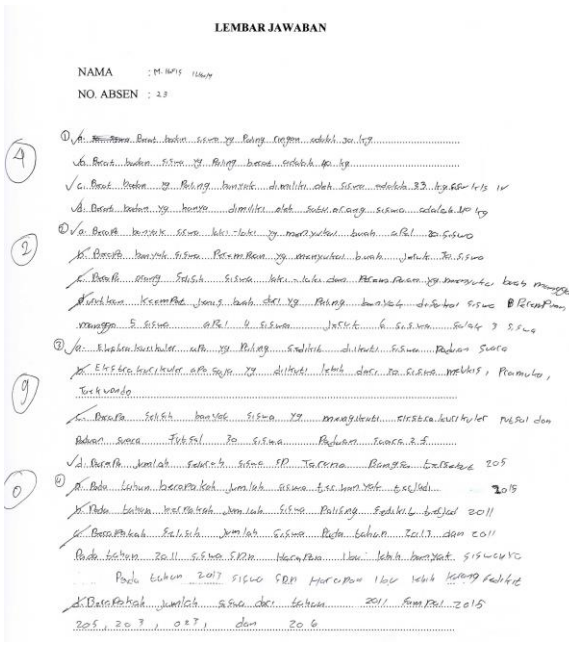 LEMBAR JAWABAN
NAMA : M.
NO. ABSEN : 23
① a. Berat badan siswa yg Paling ringan adalah 30 kg
4
b. Berat badan siswa yg Paling berat adalah 40 kg
c. Berat badan yg Paling banyak dimiliki oleh siswa adalah 33 kg kls IV
d. Berat badan yg hanya dimiliki oleh satu orang siswa adalah kg
a. Berapa banyak siswa laki-laki yg menyukai buah aPel 20 siswa
2
b. Berapa banyak siswa Perempuan yg menyukai buah Jeruk 30 siswa
c. Berapa orang Selisih siswa laki-laki dan Perempuan yg menyukai buah mangga
d. urutkan keempat Jenis buah dari yg Paling banyak disukai siswa Perempuan
manggo 5 siswa aPel 4 siswa Jeruk 6 siswa Salak 3 siswa
③ a. Ekstrakurikuler apa yg Paling sedikit diikuti siswa Paduan Suara
b. Ekstrakurikuler apa saja yg diikuti lebih dari 20 siswa Pramuka,
9
Taekwondo
c. Berapa Selisih banyak siswa yg mengikuti ekstrakurikuler Futsal dan
Paduan suara Futsal 30 siswa Paduan Suara 25
d. Berapa Jumlah seluruh siswa SD Taruna Bangsa tersebut 205
④ a. Pada tahun berapakah Jumlah siswa terbanyak terjadi 2015
0
b. Pada tahun berapakah Jumlah siswa Paling Sedikit terjadi 2011
c. Berapakah Selisih Jumlah siswa Pada tahun 2013 dan 2011
Pada tahun 2011 siswa SDN Harapan Ibu lebih banyak
Pada tahun 2013 siswa SDN Harapan Ibu lebih kurang Sedikit
d. Berapakah Jumlah siswa dari tahun 2011 Sampai 2015
205, 203, 023, dan 206